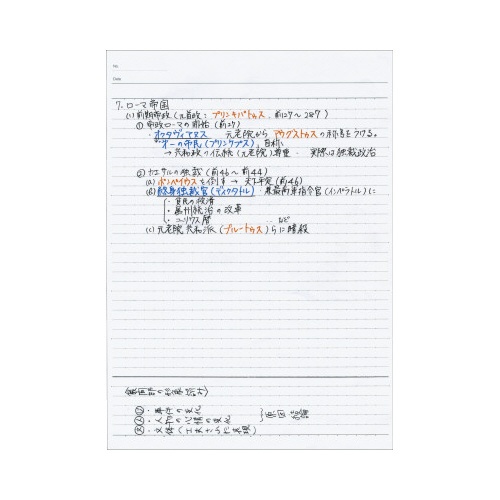 No.
Date
7. ローマ帝国
(1) 前期帝政 (元首政: プリンキパトゥス. 前27〜287)
① 帝政ローマの開始 (前27)
・オクタヴィアヌス 元老院から アウグストゥス の称号をうける。
・"第一の市民(プリンケプス)" 自称
→ 共和政の伝統 (元老院) 尊重 実際は独裁政治
② カエサルの独裁 (前46〜前44)
(a) ポンペイウスを倒す → 天下平定 (前46)
(b) 終身独裁官 (ディクタトル) 兼最高軍指令官 (インペラトル) に
・貧民の救済
・属州統治の改革
・ユリウス暦 … など
(c) 元老院 共和派 (ブルートゥス) らに暗殺
・事件の変化
・人物の心情の変化
・文体 (工夫された表現)